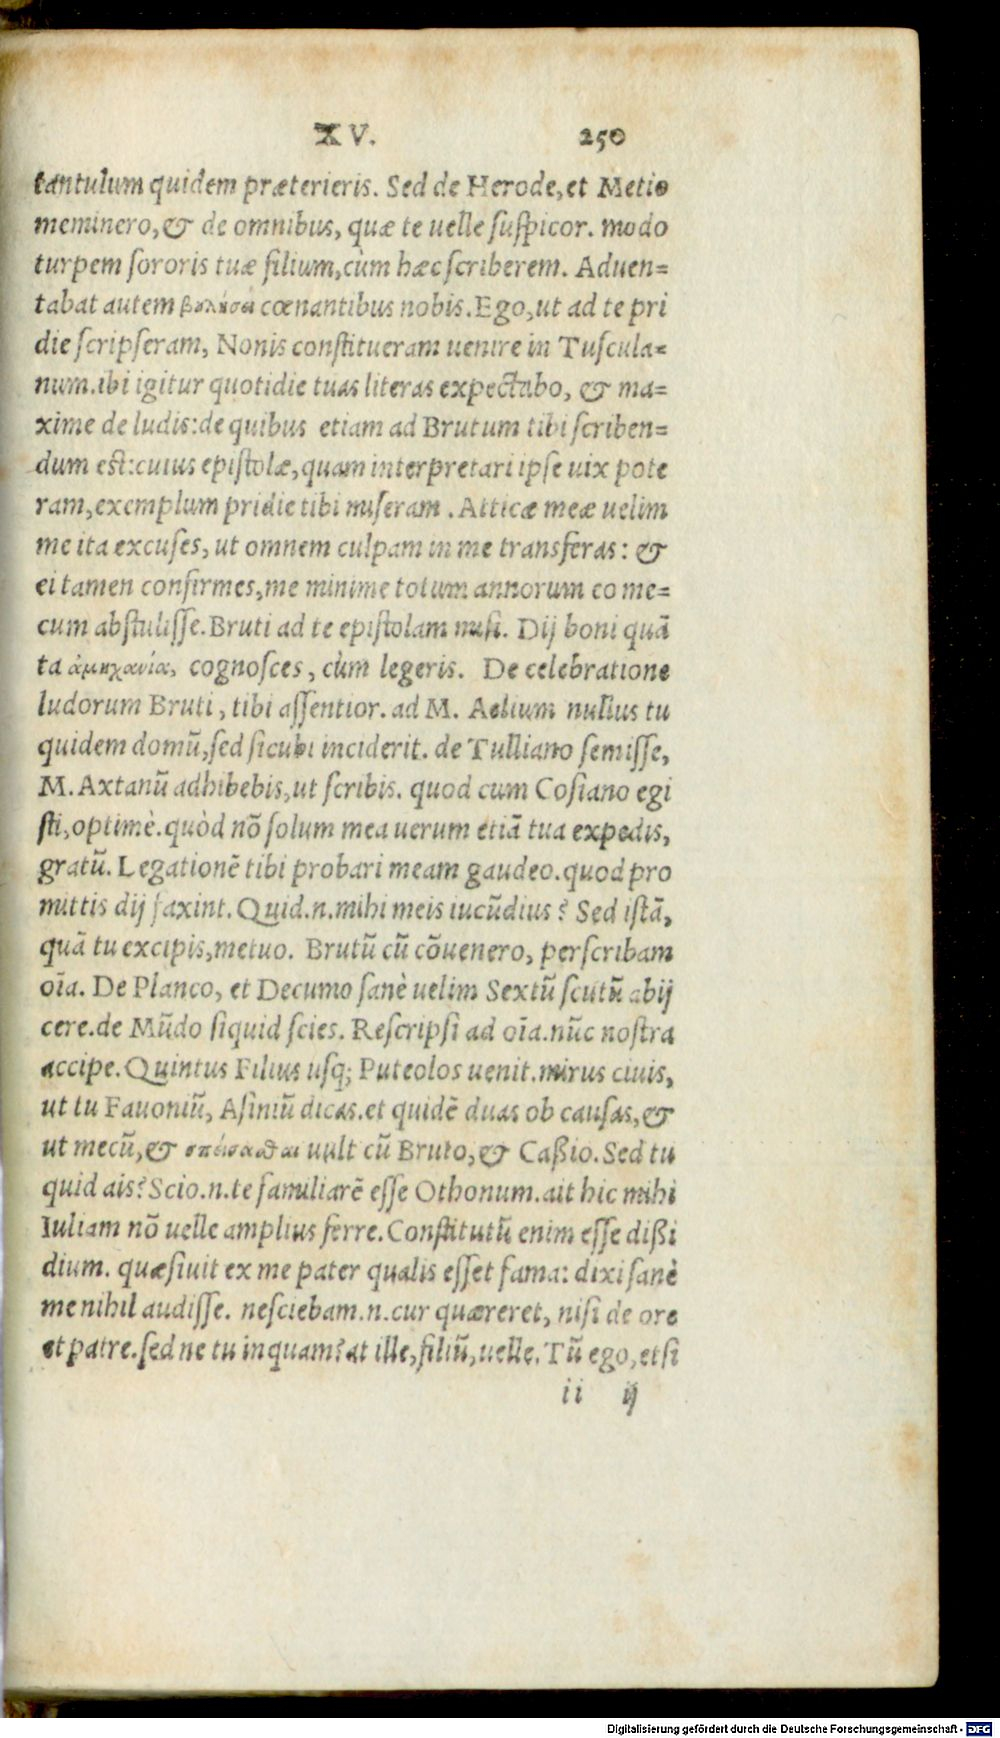 XV. 250
tantulum quidem præterieris. Sed de Herode, et Metio
meminero, & de omnibus, quæ te uelle ſuſpicor. modo
turpem ſororis tuæ filium, cùm hæc ſcriberem. Aduen=
tabat autem cœnantibus nobis. Ego, ut ad te pri
die ſcripſeram, Nonis conſtitueram uenire in Tuſcula=
num. ibi igitur quotidie tuas literas expectabo, & ma=
xime de ludis: de quibus etiam ad Brutum tibi ſcriben=
dum eſt: cuius epiſtolæ, quam interpretari ipſe uix pote
ram, exemplum pridie tibi miſeram. Atticæ meæ uelim
me ita excuſes, ut omnem culpam in me transferas: &
ei tamen confirmes, me minime totum annorum eo me=
cum abſtuliſſe. Bruti ad te epiſtolam miſi. Dij boni quā
ta ἀμηχανία, cognoſces, cùm legeris. De celebratione
ludorum Bruti, tibi aſſentior. ad M. Aelium nullus tu
quidem domū, ſed ſicubi inciderit. de Tulliano ſemiſſe,
M. Axtanū adhibebis, ut ſcribis. quod cum Coſiano egi
ſti, optimè. quòd nō ſolum mea uerum etiā tua expedis,
gratū. Legationē tibi probari meam gaudeo. quod pro
mittis dij faxint. Quid.n. mihi meis iucūdius? Sed iſtā,
quā tu excipis, metuo. Brutū cū cōuenero, perſcribam
oīa. De Planco, et Decumo ſanè uelim Sextū ſcutū abij
cere. de Mūdo ſiquid ſcies. Reſcripſi ad oīa. nūc noſtra
accipe. Quintus Filius uſq; Puteolos uenit. mirus ciuis,
ut tu Fauoniū, Aſiniū dicas. et quidē duas ob cauſas, &
ut mecū, & σπείσασθαι uult cū Bruto, & Caßio. Sed tu
quid ais? Scio.n. te familiarē eſſe Othonum. ait hic mihi
Iuliam nō uelle amplius ferre. Conſtitutū enim eſſe dißi
dium. quæſiuit ex me pater qualis eſſet fama: dixi ſanè
me nihil audiſſe. neſciebam.n. cur quæreret, niſi de ore
et patre. ſed ne tu inquam? at ille, filiū, uelle. Tū ego, etſi
ii ij
Digitalisierung gefördert durch die Deutsche Forschungsgemeinschaft - DFG